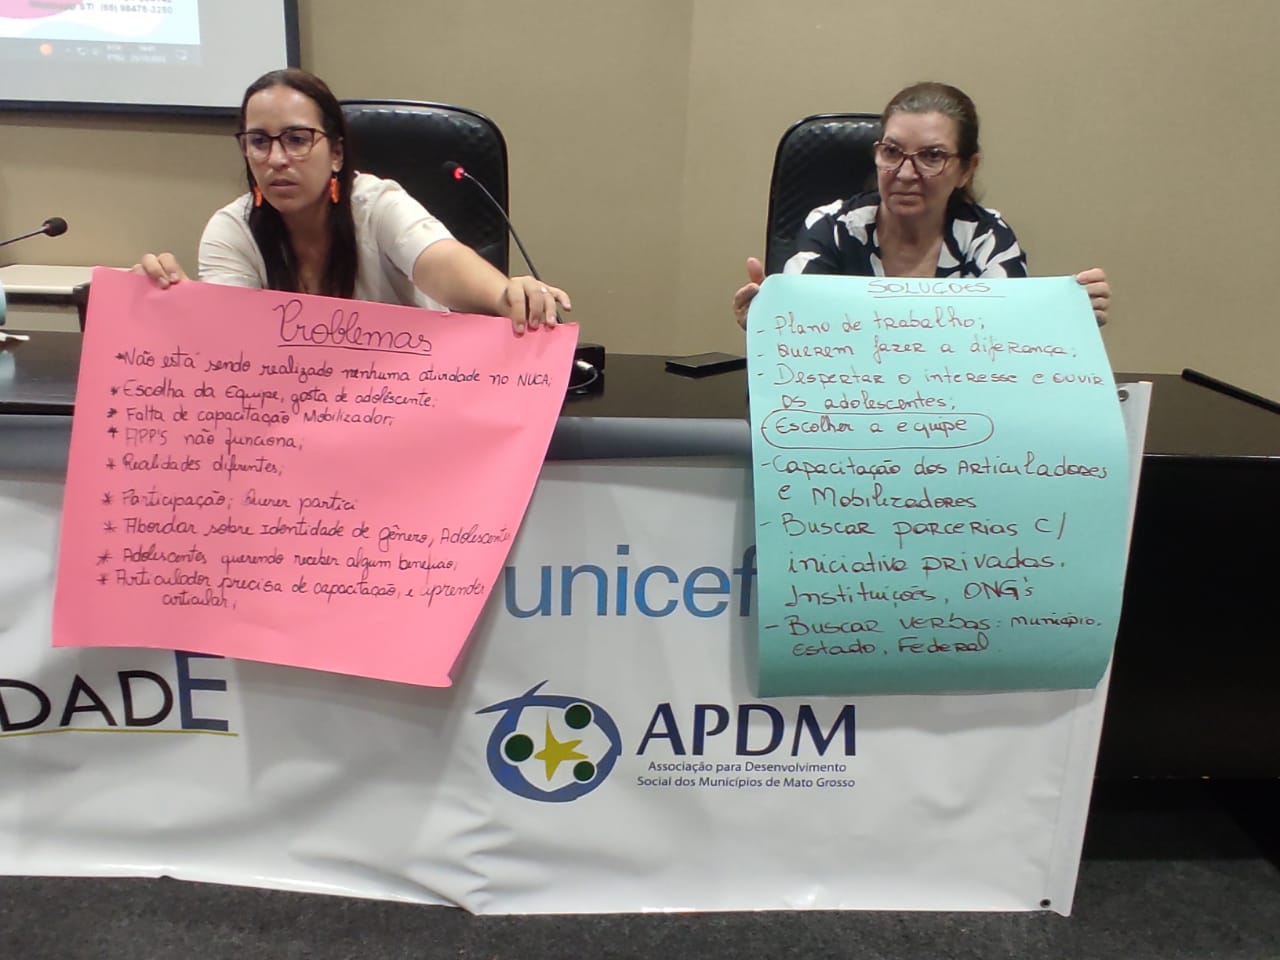 (65) 98476-2280
Problemas
*Não está sendo realizado nenhuma atividade no NUCA;
* Escolha da Equipe, gosta de adolescente;
* Falta de capacitação Mobilizador;
* APP'S não funciona;
* Realidades diferentes;
* Participação; Querer partici
* Abordar sobre Identidade de gênero, Adolescente
* Adolescentes querendo receber algum benefício;
* Articulador precisa de capacitação, e aprender
articular;
SOLUÇÕES
- Plano de trabalho;
- Querem fazer a diferença;
- Despertar o interesse e ouvir
os adolescentes;
Escolher a equipe
- Capacitação dos Articuladores
e Mobilizadores
- Buscar parcerias c/
iniciativa privadas.
Instituições, ONG's
- Buscar verbas: município.
Estado, Federal.
unicef
DADE
APDM
Associação para Desenvolvimento
Social dos Municípios de Mato Grosso